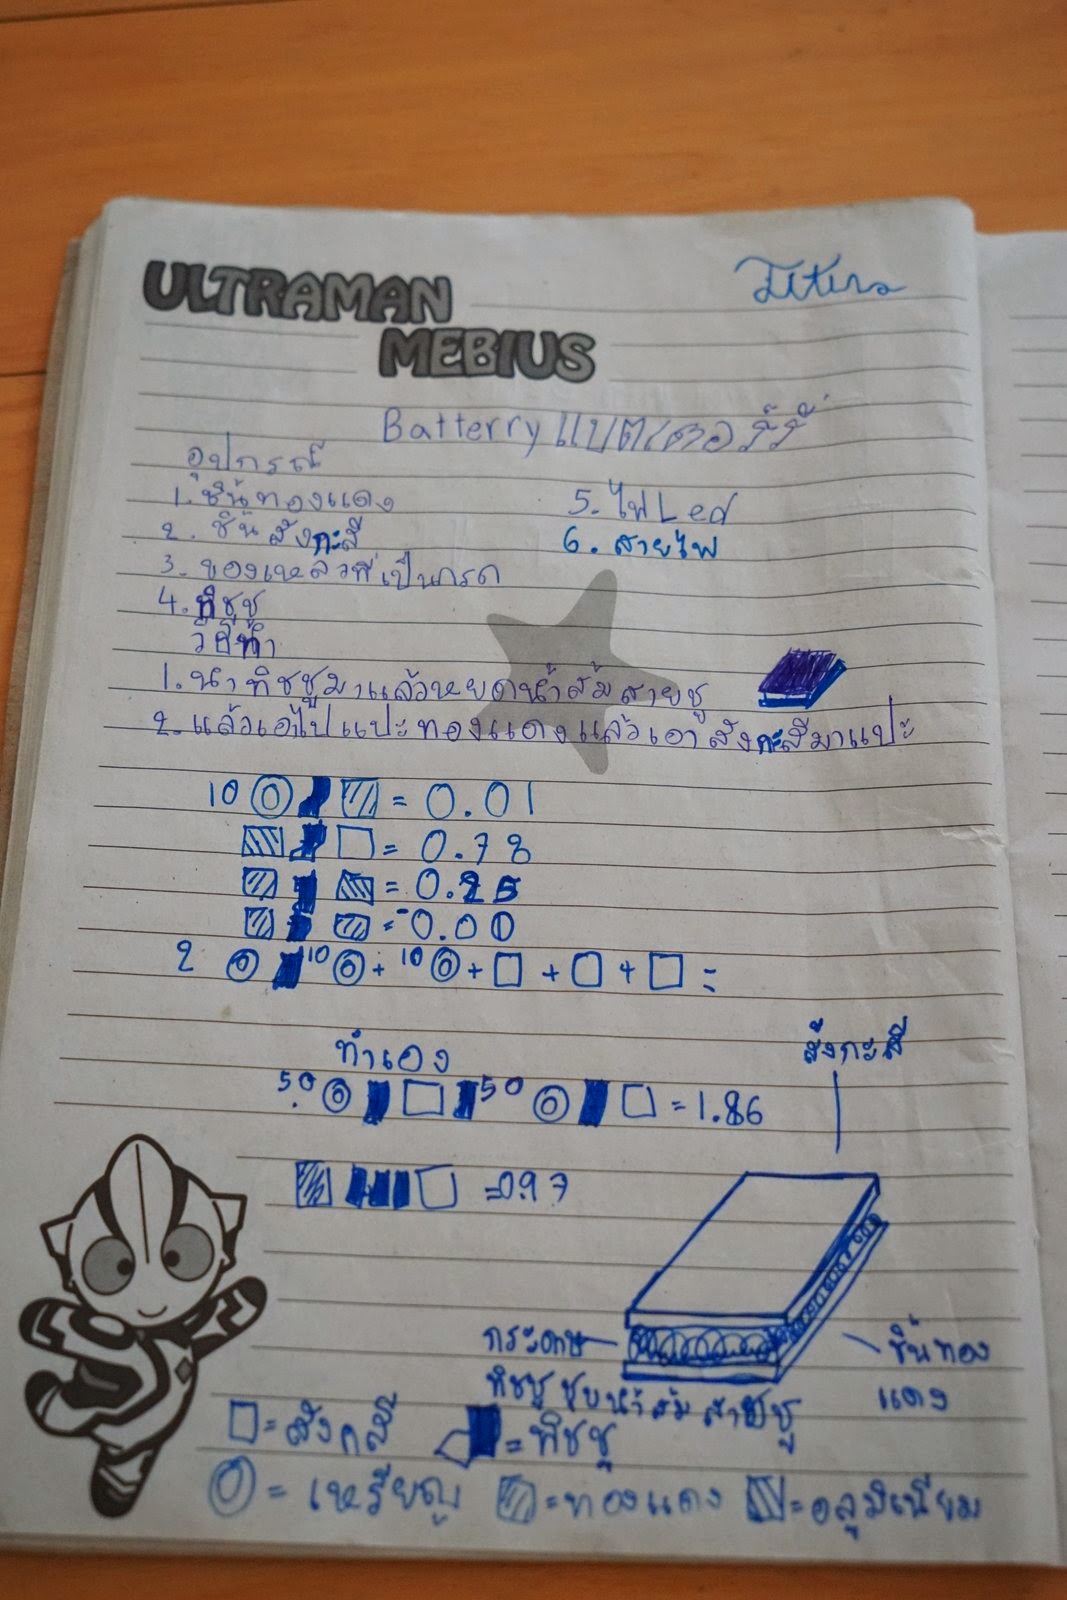 ULTRAMAN
MEBIUS
Batterry แบตเตอร์รี่
อุปกรณ์
1. ชิ้นทองแดง
5. ไฟ Led
2. ชิ้นสังกะสี
6. สายไฟ
3. ของเหลวที่เป็นกรด
4. ทิชชู
วิธีทำ
1. นำทิชชูมาแล้วหยดน้ำส้มสายชู
2. แล้วเอาไปแปะทองแดงแล้วเอาสังกะสีมาแปะ
10 = 0.01
= 0.78
= 0.25
= -0.00
2 10 + 10 + + + =
ทำเอง
สังกะสี
50 50 = 1.86
= 0.97
กระดาษ
ทิชชูชุบน้ำส้มสายชู
ชิ้นทอง
แดง
= สังกสี = ทิชชู
= เหรียญ = ทองแดง = อลูมิเนียม